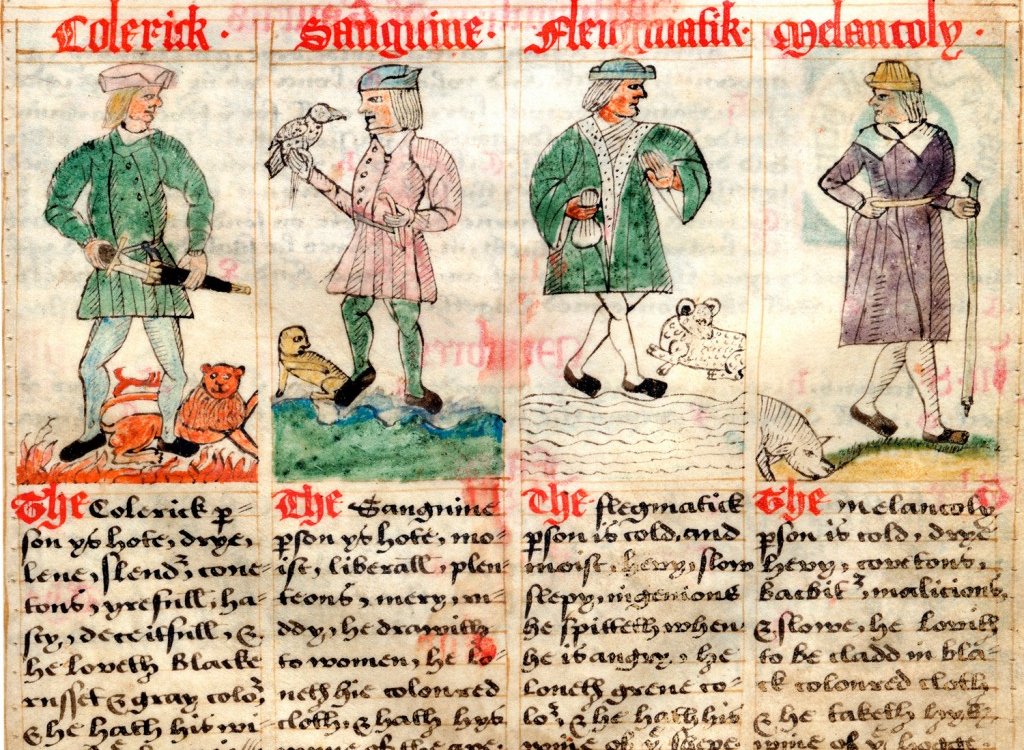 Colerick.
Sanguine.
Fleugmatik.
Melancoly.
The Colerick p-
son ys hote, drye,
lene, slend', cove-
tous, yrefull, ha-
sty, deceitfull, &
he loveth Blacke
russet & gray colo'
& he hath his wi-
The Sanguine
pson ys hote, mo-
ist, liberall, plen-
teous, mery, ru-
ddy, he drawith
to women, he lo-
veth hie coloured
cloth, & hath hys
wyne of the ape.
The flegmatick
pson is cold, and
moist, hevy, slow
slepy, ingenious
he spitteth when
he is angry, he
loveth grene co-
lo', & he hath his
wyne of yᵉ shepe.
The Melancoly
pson is cold, drye
hevy, covetous,
bacbit', malicious,
& slowe, he lovith
to be cladd in bla-
ck coloured cloth
& he taketh hys
wyne of yᵉ